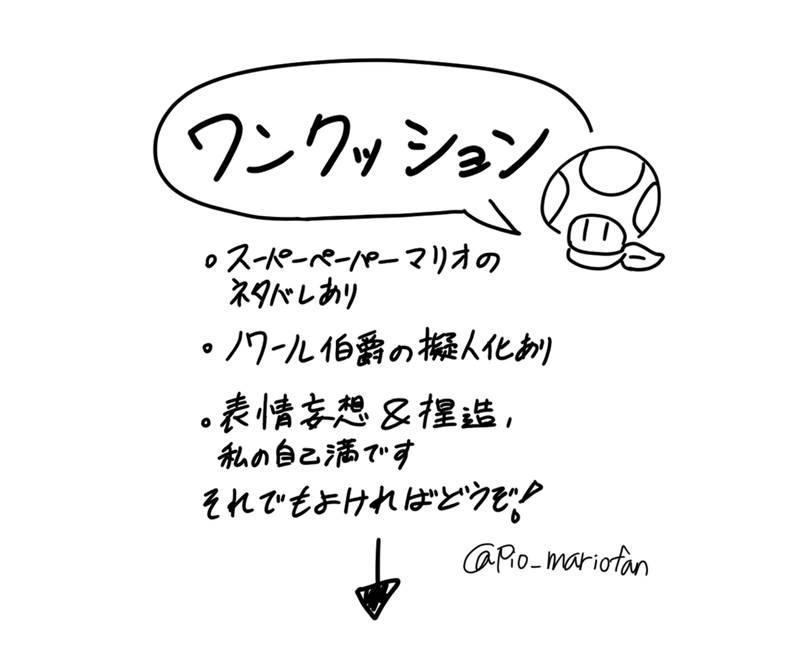 ワンクッション
• スーパーペーパーマリオの
ネタバレあり
• ノワール伯爵の擬人化あり
• 表情妄想&捏造,
私の自己満です
それでもよければどうぞ!
@Pio_mariofan